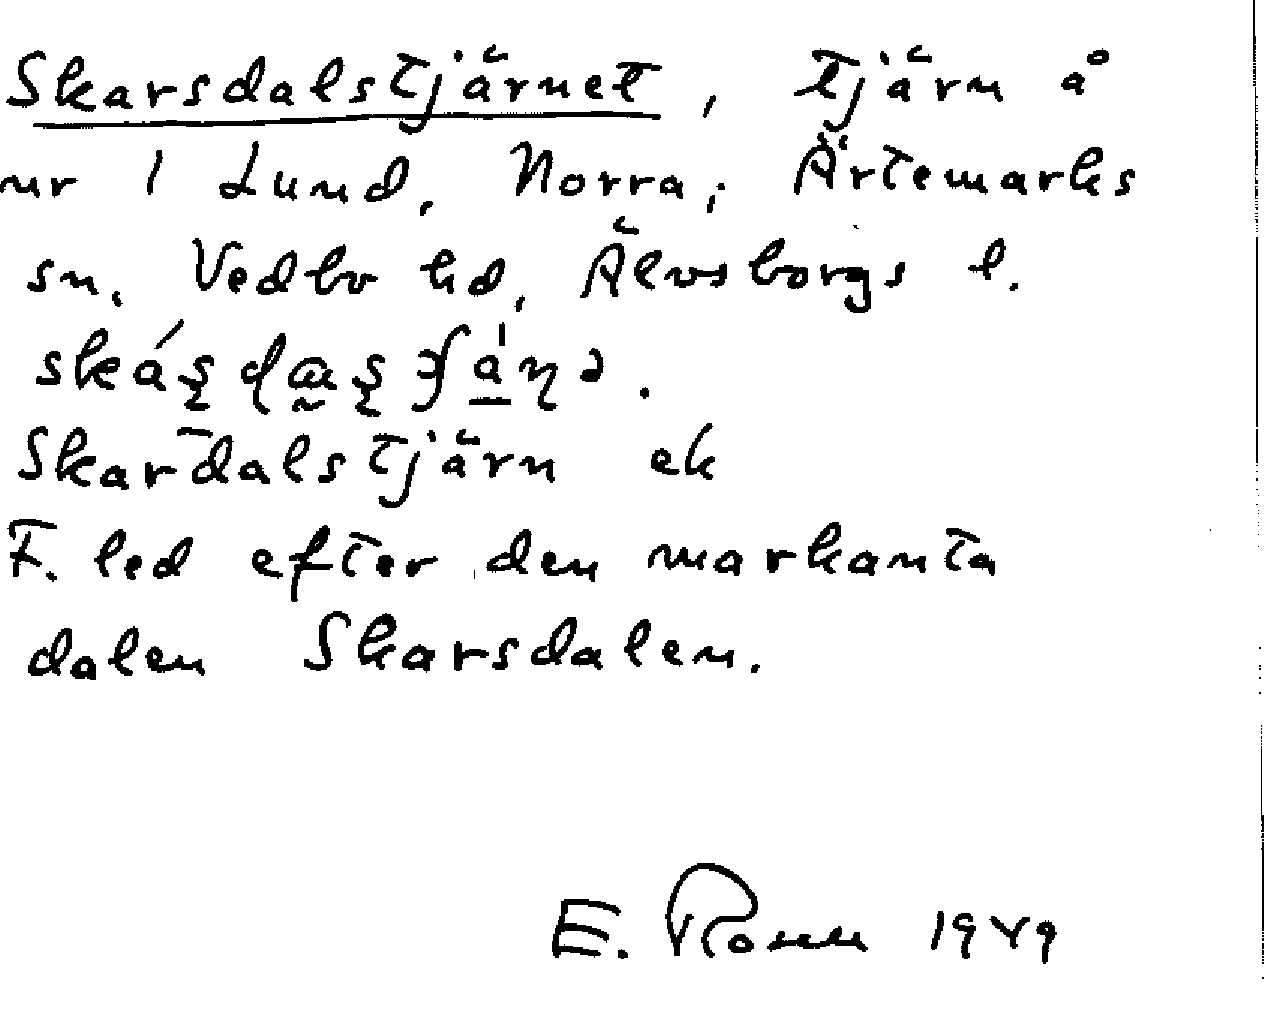 Skarsdalstjärnet, tjärn å
nr 1 Lund, Norra, Ärtemarks
sn, Vedbo hd, Älvsborgs l.
Skardalstjärn ek
F. led efter den markanta
dalen Skarsdalen.
E. Rosell 1949